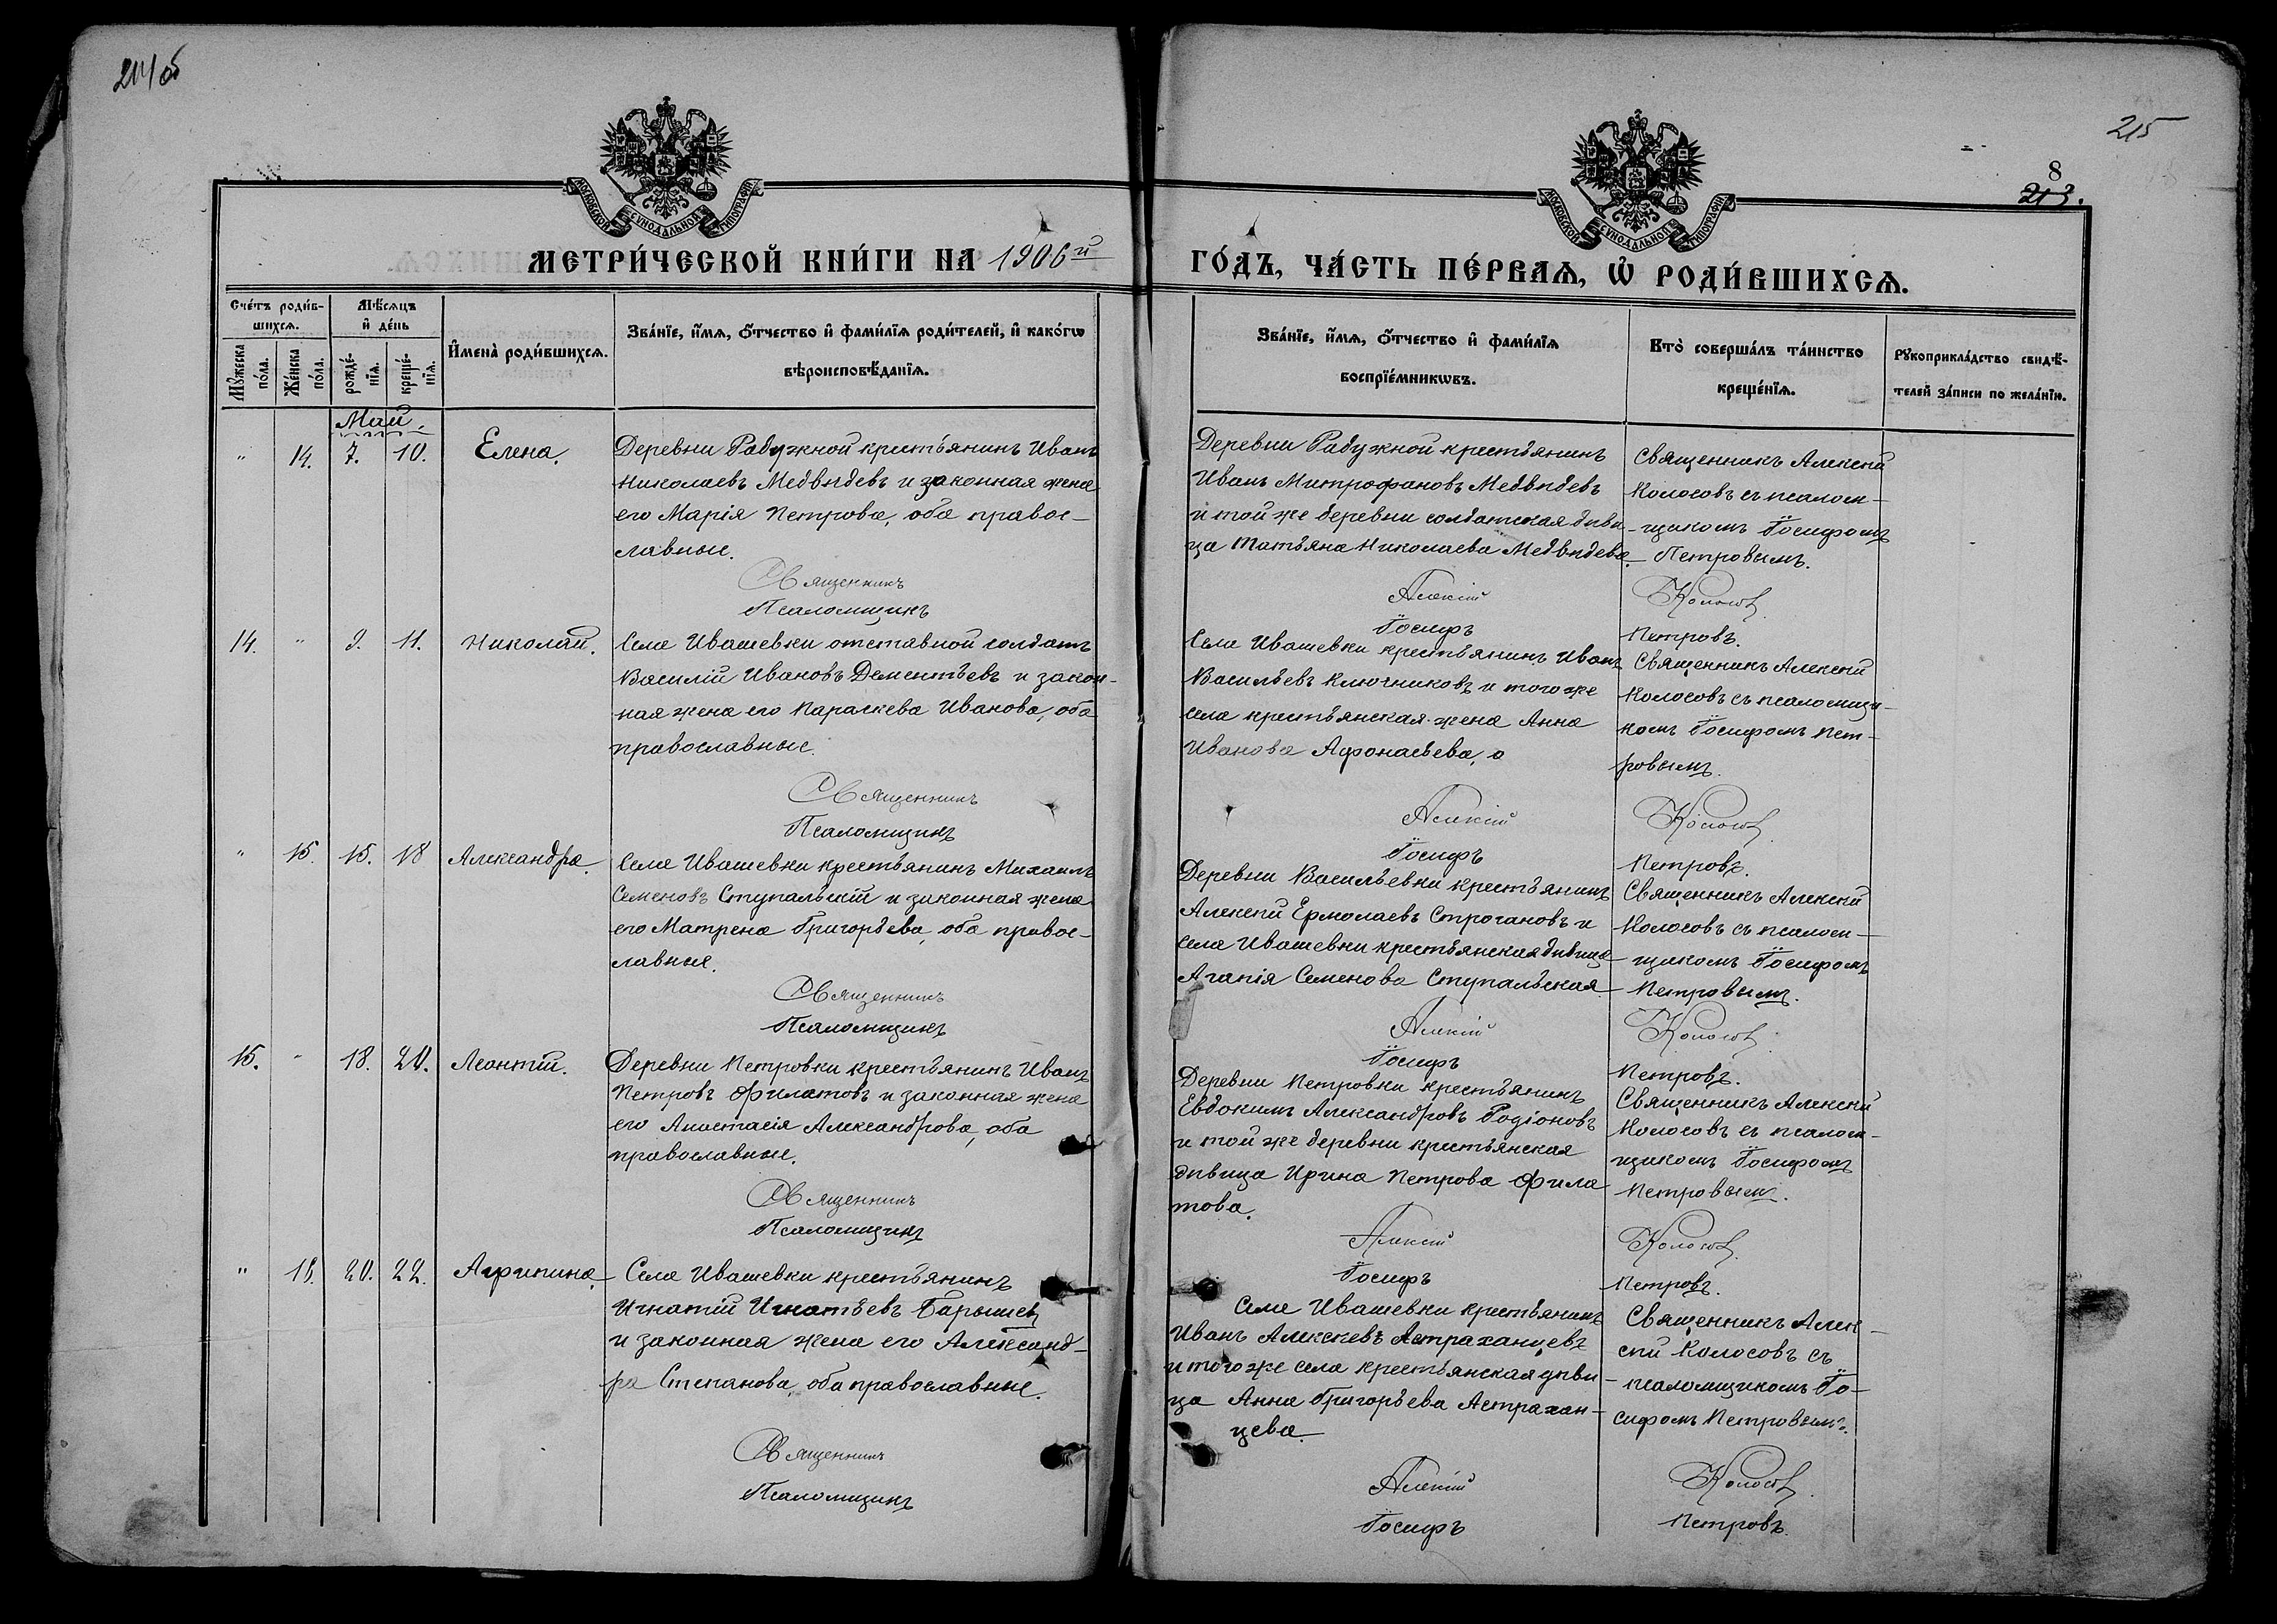 214об
215
8
213.
МОСКОВСКОЙ СѴНОДАЛЬНОЙ ТИПОГРАФІИ
МОСКОВСКОЙ СѴНОДАЛЬНОЙ ТИПОГРАФІИ
МЕТРИ́ЧЕСКОЙ КНИ́ГИ НА 1906й
ГО́ДЪ, ЧА́СТЬ ПЕ́РВАѦ, Ѡ҆ РОДИ́ВШИХСѦ.
Сче́тъ роди́в-
шихсѧ.
Мꙋ́жеска по́ла.
Же́нска по́ла.
Мѣ́сѧцъ
и҆ де́нь
рожде́-
нїѧ.
креще́-
нїѧ.
И҆мена̀ роди́вшихсѧ.
Зва́нїе, и҆́мѧ, ѻ҆́тчество и҆ фами́лїѧ роди́телей, и҆ како́гѡ
вѣроисповѣ́данїѧ.
Зва́нїе, и҆́мѧ, ѻ҆́тчество и҆ фами́лїѧ
воспрїе́мникѡвъ.
Кто̀ соверша́лъ та́инство
креще́нїѧ.
Рꙋкоприкла́дство свидѣ́-
телей за́писи по жела́нїю.
Май.
" 14. 7. 10. Елена.
Деревни Радужной крестьянинъ Иванъ
Николаевъ Медвѣдевъ и законная жена
его Марія Петрова, оба правос-
лавные.
Священникъ
Псаломщикъ
Деревни Радужной крестьянинъ
Иванъ Митрофановъ Медвѣдевъ
и той же деревни солдатская дѣви-
ца Татьяна Николаева Медвѣдева.
Алексій
Іосифъ
Священникъ Алексій
Колосовъ съ псалом-
щикомъ Іосифомъ
Петровымъ.
Колосовъ
Петровъ.
14. " 9. 11. Николай.
Села Ивашевки отставной солдатъ
Василій Ивановъ Дементьевъ и закон-
ная жена его Параскева Иванова, оба
православные.
Священникъ
Псаломщикъ
Села Ивашевки крестьянинъ Иванъ
Васильевъ Ключниковъ и того же
села крестьянская жена Анна
Иванова Афонасьева.
Алексій
Іосифъ
Священникъ Алексій
Колосовъ съ псаломщи-
комъ Іосифомъ Пет-
ровымъ.
Колосовъ
Петровъ.
" 15. 15. 18 Александра.
Села Ивашевки крестьянинъ Михаилъ
Семеновъ Ступальскій и законная жена
его Матрена Григорьева, оба правос-
лавные.
Священникъ
Псаломщикъ
Деревни Васильевки крестьянинъ
Алексѣй Ермолаевъ Строгановъ и
села Ивашевки крестьянская дѣвица
Агапія Семенова Ступальская.
Алексій
Іосифъ
Священникъ Алексій
Колосовъ съ псалом-
щикомъ Іосифомъ
Петровымъ.
Колосовъ
Петровъ.
15. " 18. 20. Леонтій.
Деревни Петровки крестьянинъ Иванъ
Петровъ Филатовъ и законная жена
его Анастасія Александрова, оба
православные.
Священникъ
Псаломщикъ
Деревни Петровки крестьянинъ
Евдокимъ Александровъ Родіоновъ
и той же деревни крестьянская
дѣвица Ирина Петрова Фила
това.
Алексій
Іосифъ
Священникъ Алексій
Колосовъ съ псалом-
щикомъ Іосифомъ
Петровымъ.
Колосовъ
Петровъ.
" 18. 20. 22. Агрипина.
Села Ивашевки крестьянинъ
Игнатій Игнатьевъ Барышевъ
и законная жена его Александ-
ра Степанова, оба православные.
Священникъ
Псаломщикъ
Села Ивашевки крестьянинъ
Иванъ Алексѣевъ Астраханцевъ
и того же села крестьянская дѣви-
ца Анна Григорьева Астрахан-
цева.
Алексій
Іосифъ
Священникъ Алек-
сій Колосовъ съ
псаломщикомъ Іо-
сифомъ Петровымъ.
Колосовъ
Петровъ.